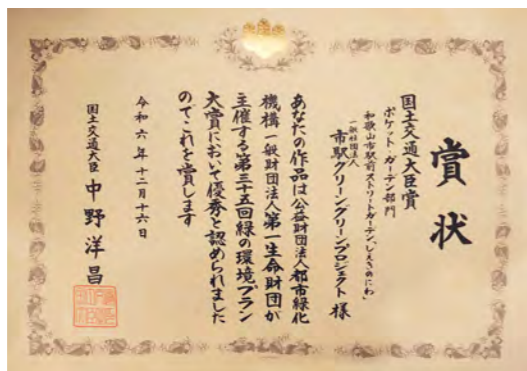 賞状
国土交通大臣賞
ポケット・ガーデン部門
和歌山市駅前ストリートガーデン「しえきのにわ」
一般社団法人
市駅グリーングリーンプロジェクト 様
あなたの作品は公益財団法人都市緑化
機構 一般財団法人第一生命財団が
主催する第三十五回緑の環境プラン
大賞において優秀と認められました
のでこれを賞します
令和六年十二月十六日
国土交通大臣 中野洋昌